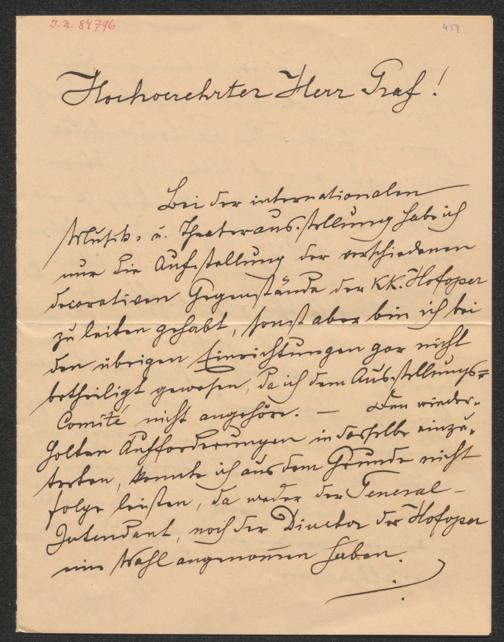 J.N. 84796
459
Hochverehrter Herr Graf!
Bei der internationalen
Musik- u. Theaterausstellung habe ich
nur die Aufstellung der verschiedenen
decorativen Gegenstände der KK. Hofoper
zu leiten gehabt, sonst aber bin ich bei
den übrigen Einrichtungen gar nicht
betheiligt gewesen, da ich dem Ausstellungs=
Comité nicht angehöre. — Den wieder-
holten Aufforderungen in dasselbe einzu-
treten, konnte ich aus dem Grunde nicht
folge leisten, da weder der General-
Intendant, noch der Director der Hofoper
eine Wahl angenom̅en haben.